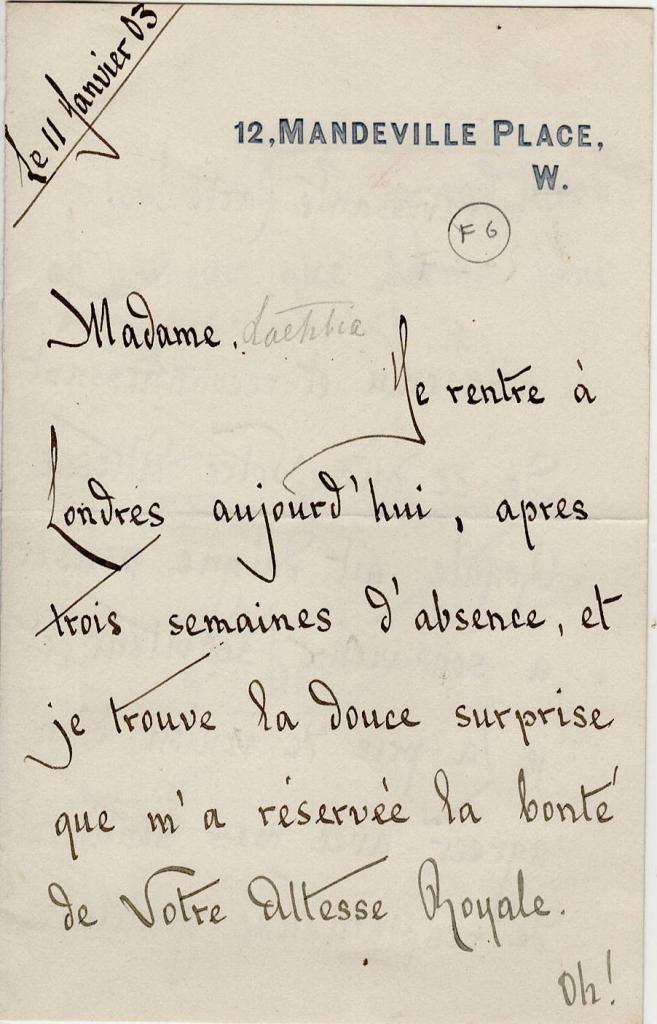 Le 11 Janvier 03
12, MANDEVILLE PLACE,
W.
F G
Madame. Laetitia
Je rentre à
Londres aujourd'hui, après
trois semaines d'absence, et
je trouve la douce surprise
que m'a réservée la bonté
de Votre Altesse Royale.
Oh!